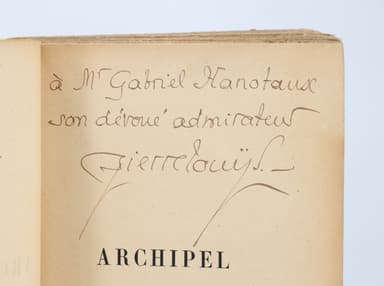 à Mr Gabriel Hanotaux
son dévoué admirateur
Pierre Louÿs.
ARCHIPEL